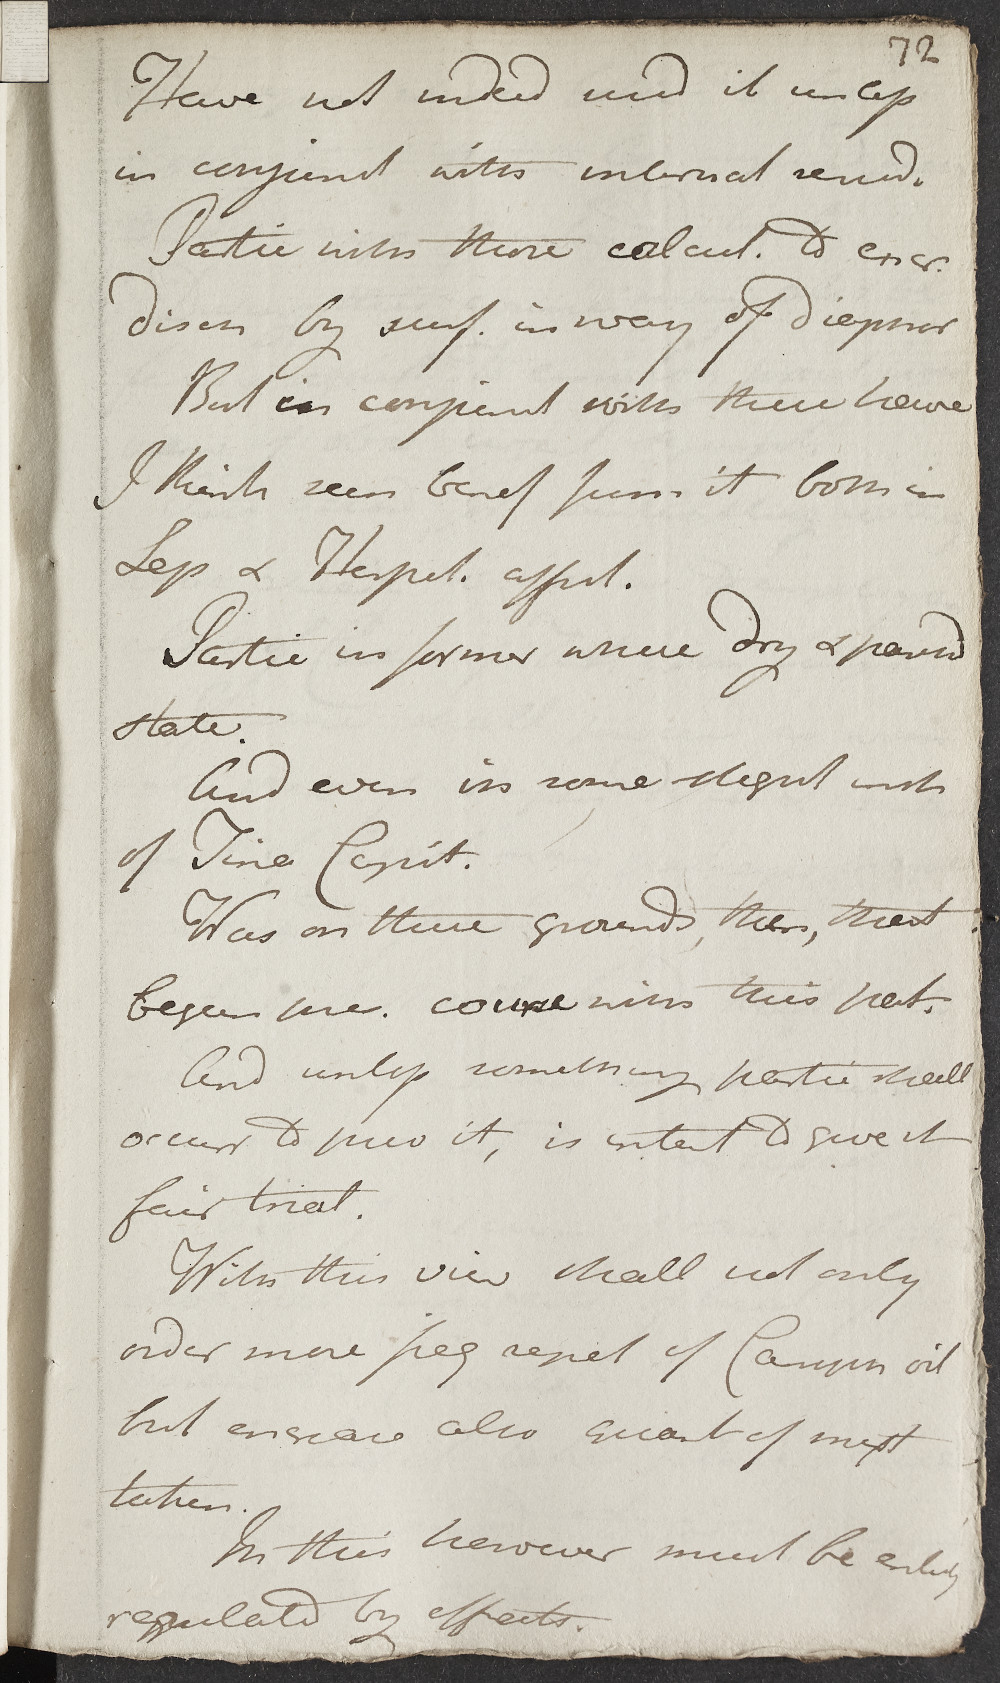 72
Have not indeed used it unless
in conjunct with internal remed.
Partic with those calcul. to encr.
disch by surf. in way of diaphor
But in conjunct with these have
I think seen benef from it both in
Lep & Herpet. affect.
Partic in former where dry & parchd
state.
And even in some slight inst
of Tinea Capit.
Was on these grounds, then, that
began pres. course with this pat.
And unless something partic shall
occurr to prev it, is intent to give it
fair trial.
With this view shall not only
order more freq repet of Camphr oil
but increase also quant of mixt
taken.
In this however must be entirely
regulated by effects.